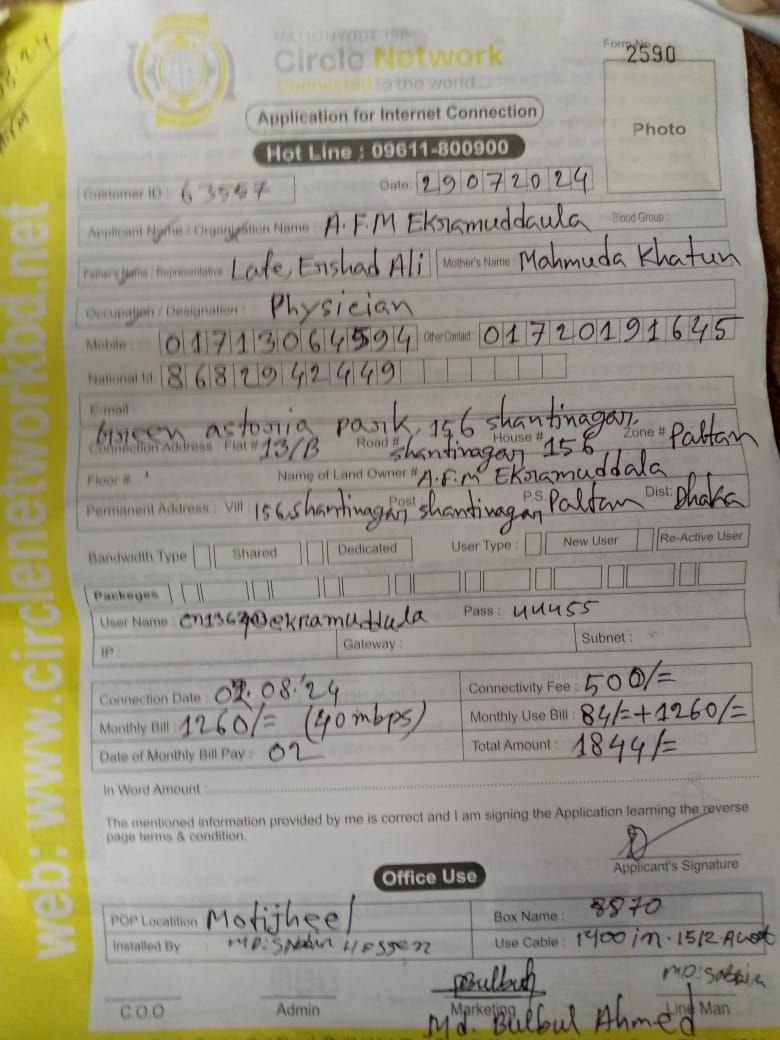 NATIONWIDE ISP
Circle Network
Connected to the world
Form No 2590
Application for Internet Connection
Photo
Hot Line : 09611-800900
Customer ID : 63557 Date: 29072024
Applicant Name / Organization Name : A.F.M Ekramuddaula Blood Group :
Father's Name / Representative Late, Ershad Ali Mother's Name : Mahmuda Khatun
Occupation / Designation : Physician
Mobile : 01713064594 Other Contact : 01720191645
National Id : 8682942449
E-mail :
Green astoria park, 156 shantinagar,
Connection Address : Flat # 13/B Road # shantinagar House # 156 Zone # Paltan
Floor # Name of Land Owner # A.F.M Ekramuddala
Permanent Address : Vill 156, shantinagar, Post shantinagar P.S. Paltan Dist: Dhaka
Bandwidth Type Shared Dedicated User Type : New User Re-Active User
Packeges
User Name : @ekramuddula Pass : 44455
IP : Gateway : Subnet :
Connection Date : 02.08.'24 Connectivity Fee : 500/=
Monthly Bill : 1260/= (40mbps) Monthly Use Bill : 84/=+1260/=
Date of Monthly Bill Pay : 02 Total Amount : 1844/=
In Word Amount :
The mentioned information provided by me is correct and I am signing the Application learning the reverse
page terms & condition.
Applicant's Signature
Office Use
POP Locatition Motijheel Box Name : 8870
Installed By Use Cable : 1400
MD: Sabbir
C.O.O Admin Marketing Line Man
Md. Bulbul Ahmed
web: www.circlenetworkbd.net